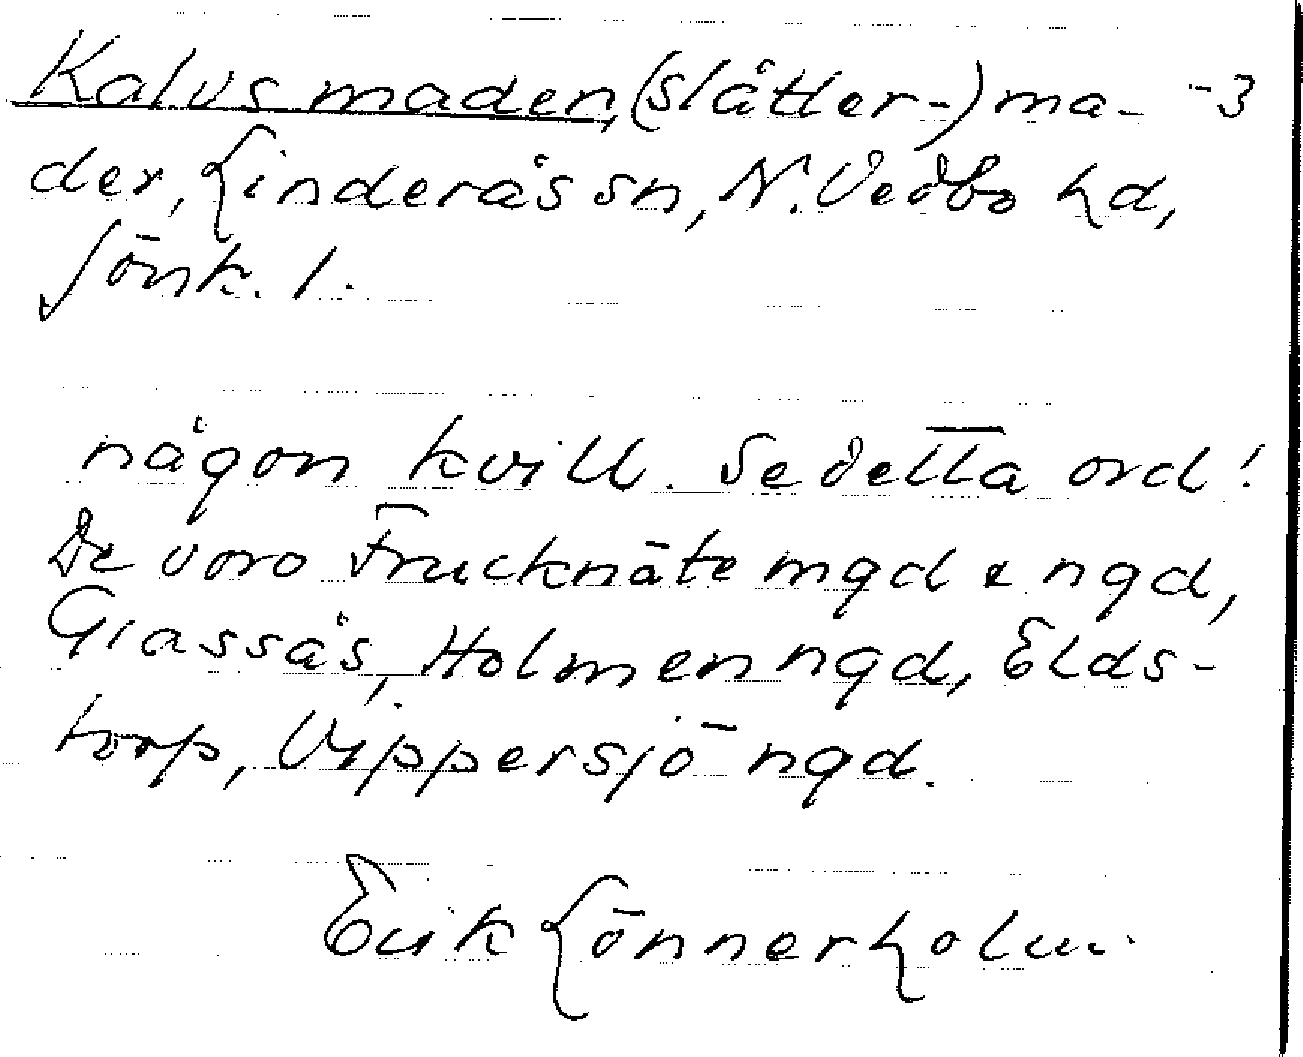 Kalvs maden, (slåtter-) ma- -3
der, Linderås sn, N. Vedbo hd,
Jönk. l.
någon kvill. Se detta ord!
De voro Frucknäte mgd & ngd,
Grassås, Holmen ngd, Elds-
torp, Vippersjö ngd.
Erik Lönnerholm.